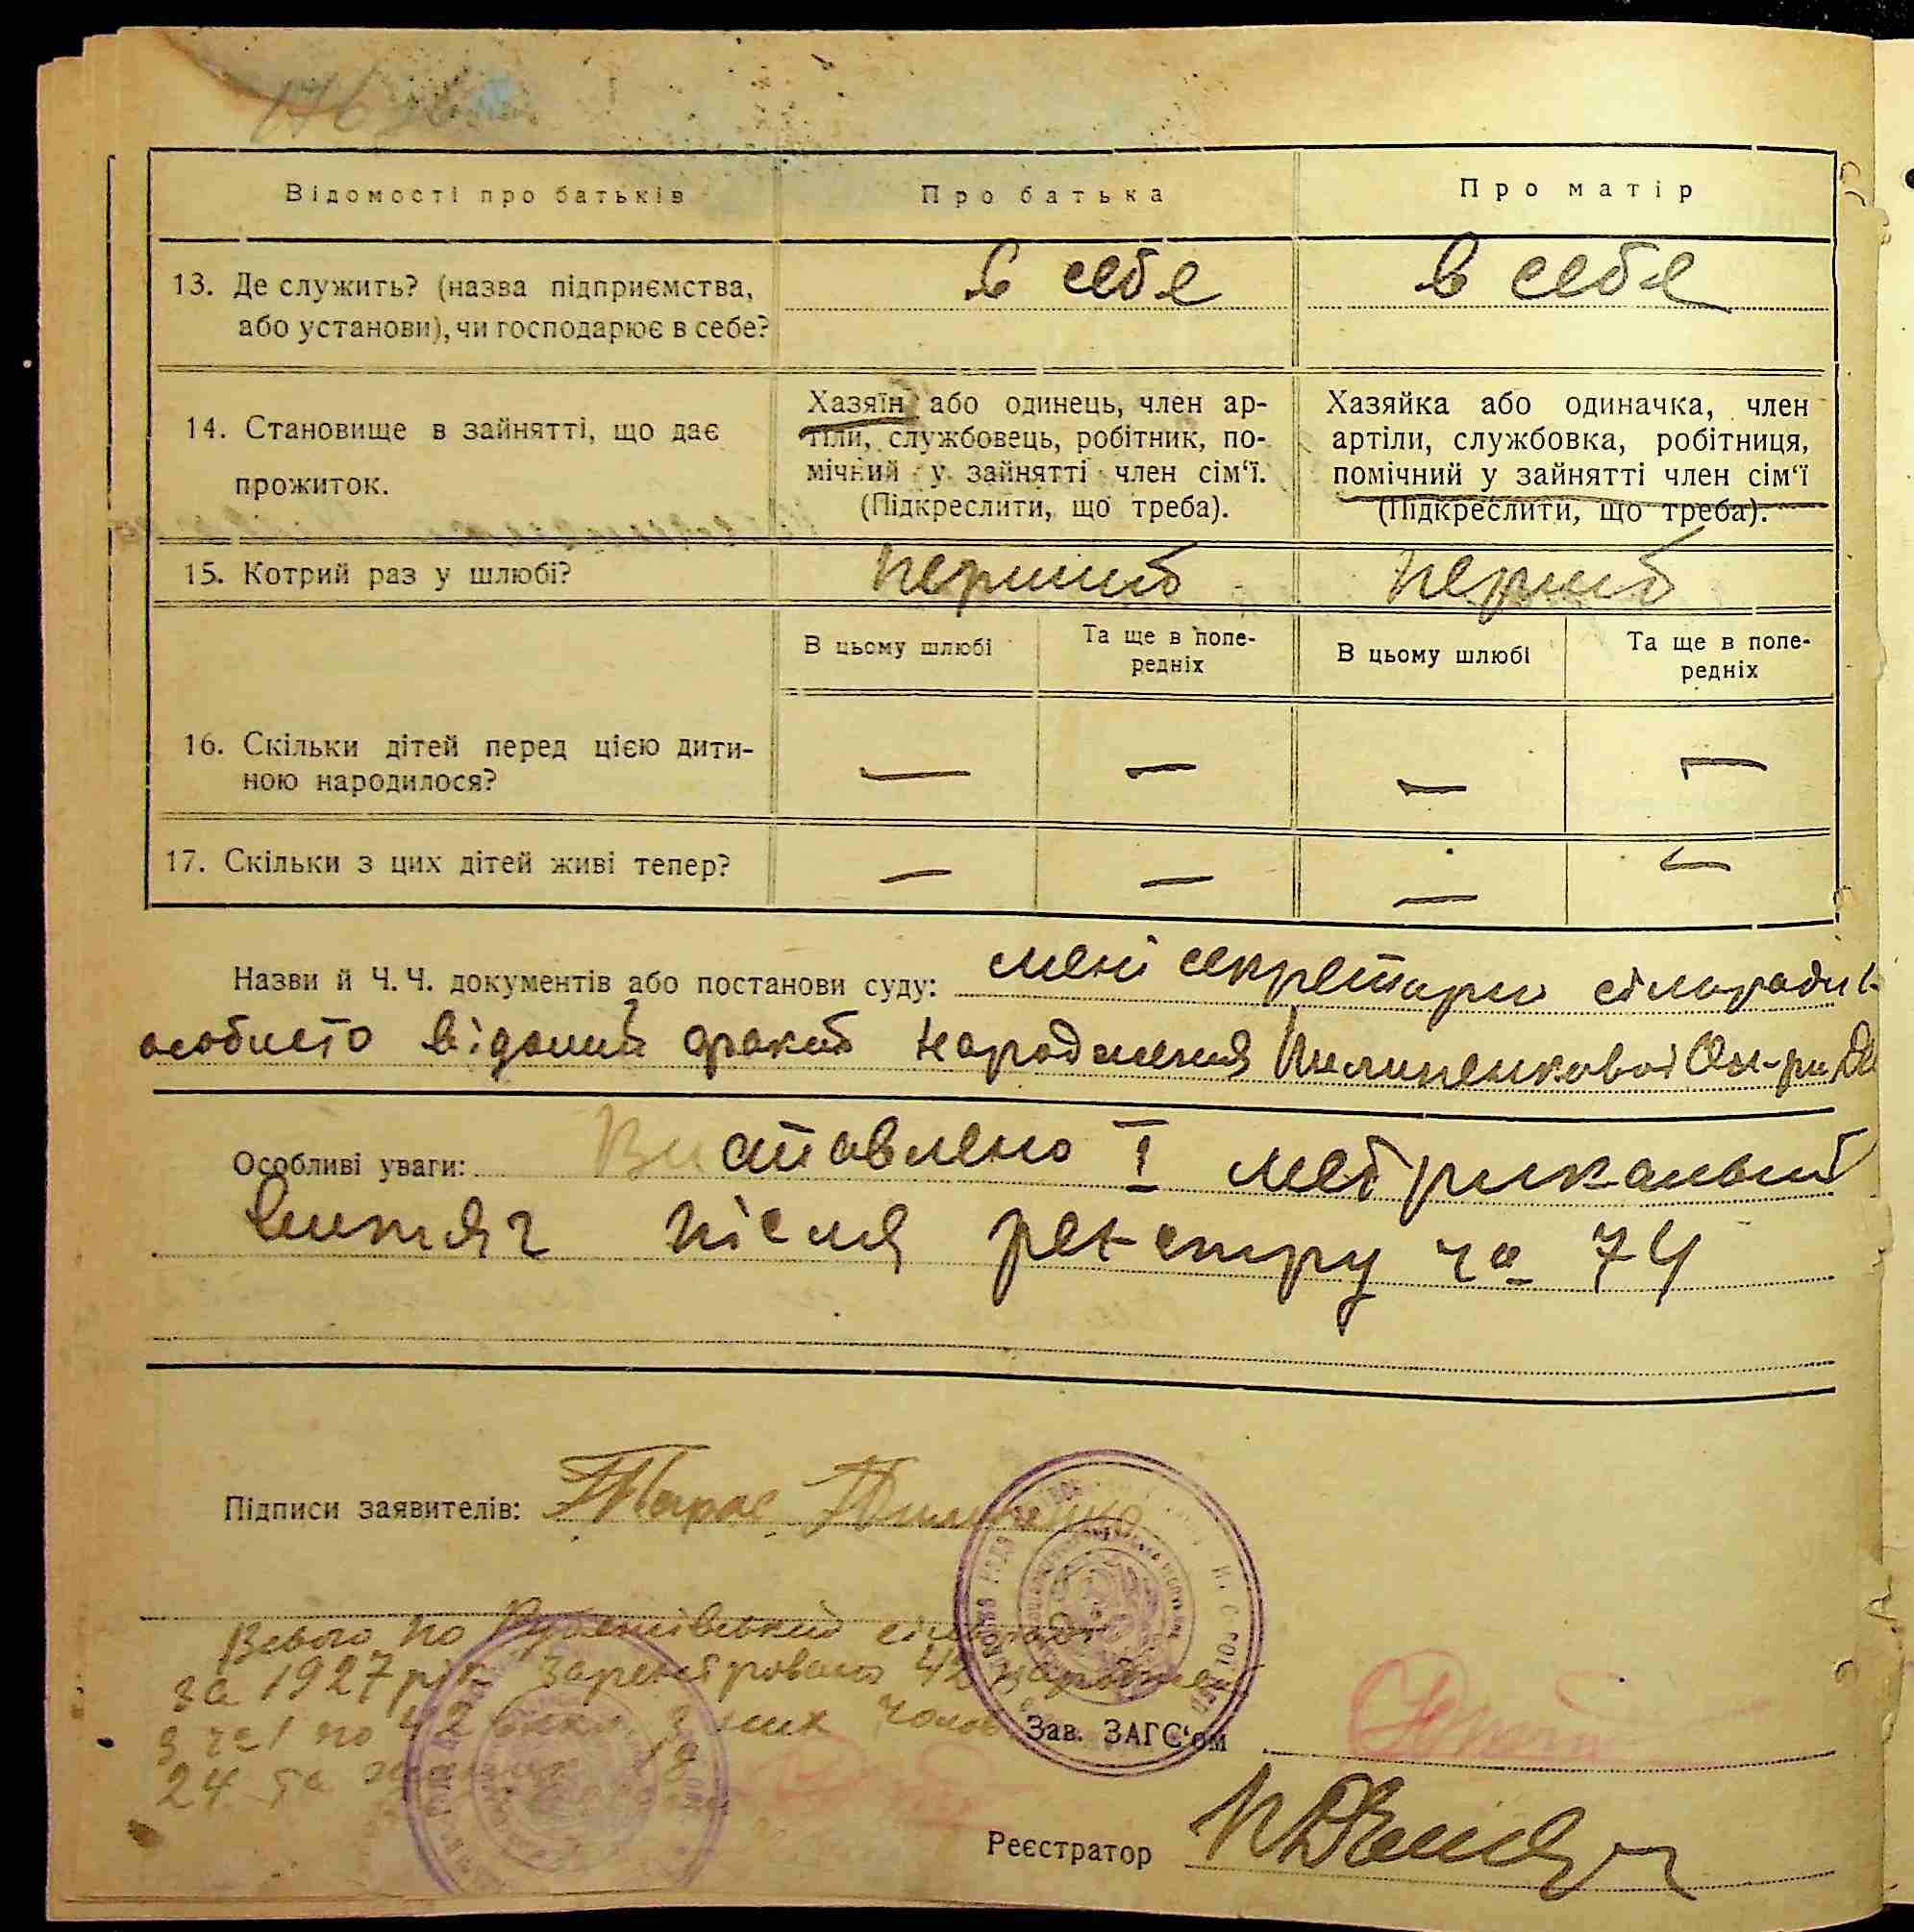 Відомості про батьків
Про батька
Про матір
13. Де служить? (назва підприємства,
або установи), чи господарює в себе?
в себе
в себе
14. Становище в зайнятті, що дає
прожиток.
Хазяїн або одинець, член ар-
тіли, службовець, робітник, по-
мічний у зайнятті член сім‘ї.
(Підкреслити, що треба).
Хазяйка або одиначка, член
артіли, службовка, робітниця,
помічний у зайнятті член сім‘ї
(Підкреслити, що треба).
15. Котрий раз у шлюбі?
перший
перший
В цьому шлюбі
Та ще в попе-
редніх
В цьому шлюбі
Та ще в попе-
редніх
16. Скільки дітей перед цією дити-
ною народилося?
— — — —
17. Скільки з цих дітей живі тепер?
— — — —
Назви й Ч. Ч. документів або постанови суду: мені секретарю сільради
особисто відомий факт народження Пилипенкової
Особливі уваги: Виставлено I метрикальний
витяг після реєстру ча 74
Підписи заявителів: Тарас Пилипенко
Всього по сільраді
за 1927 рік зареєстровано 42
з ч 1 по 42 вкл. з них чолов
24 та жіночих 18
Зав. ЗАГС‘ом
Реєстратор